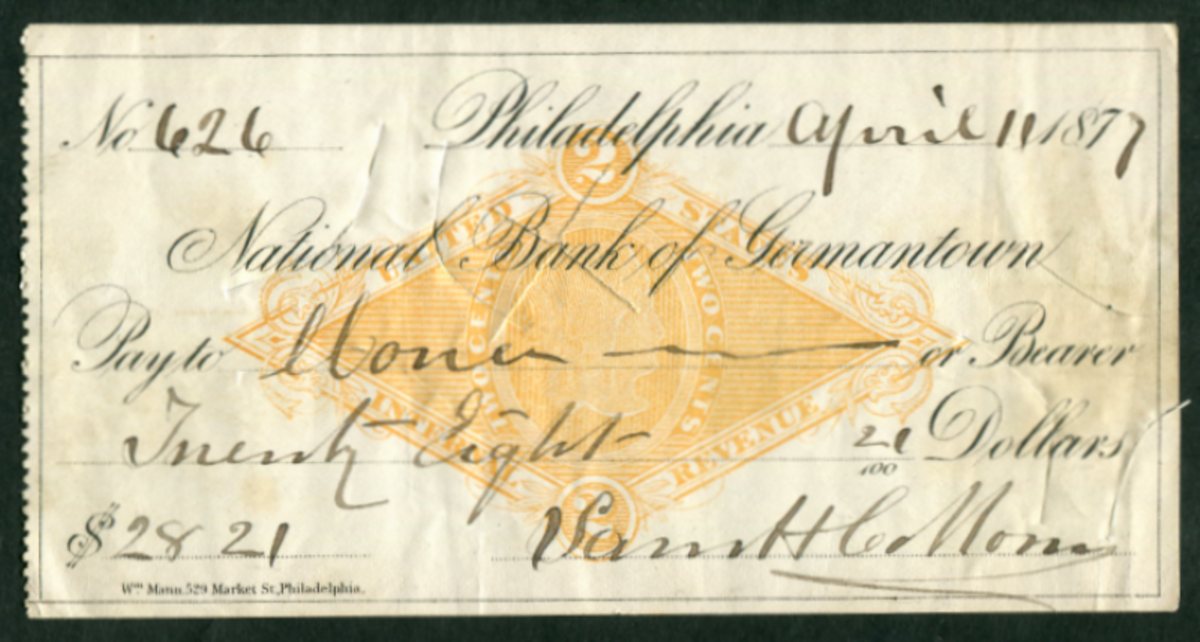 No 626 Philadelphia April 11 1877
National Bank of Germantown
Pay to or Bearer
Twenty Eight 21/100 Dollars
$ 28 21
Wm Mann, 529 Market St, Philadelphia.
2
UNITED STATES
TWO CENTS TWO CENTS
INTERNAL REVENUE
2